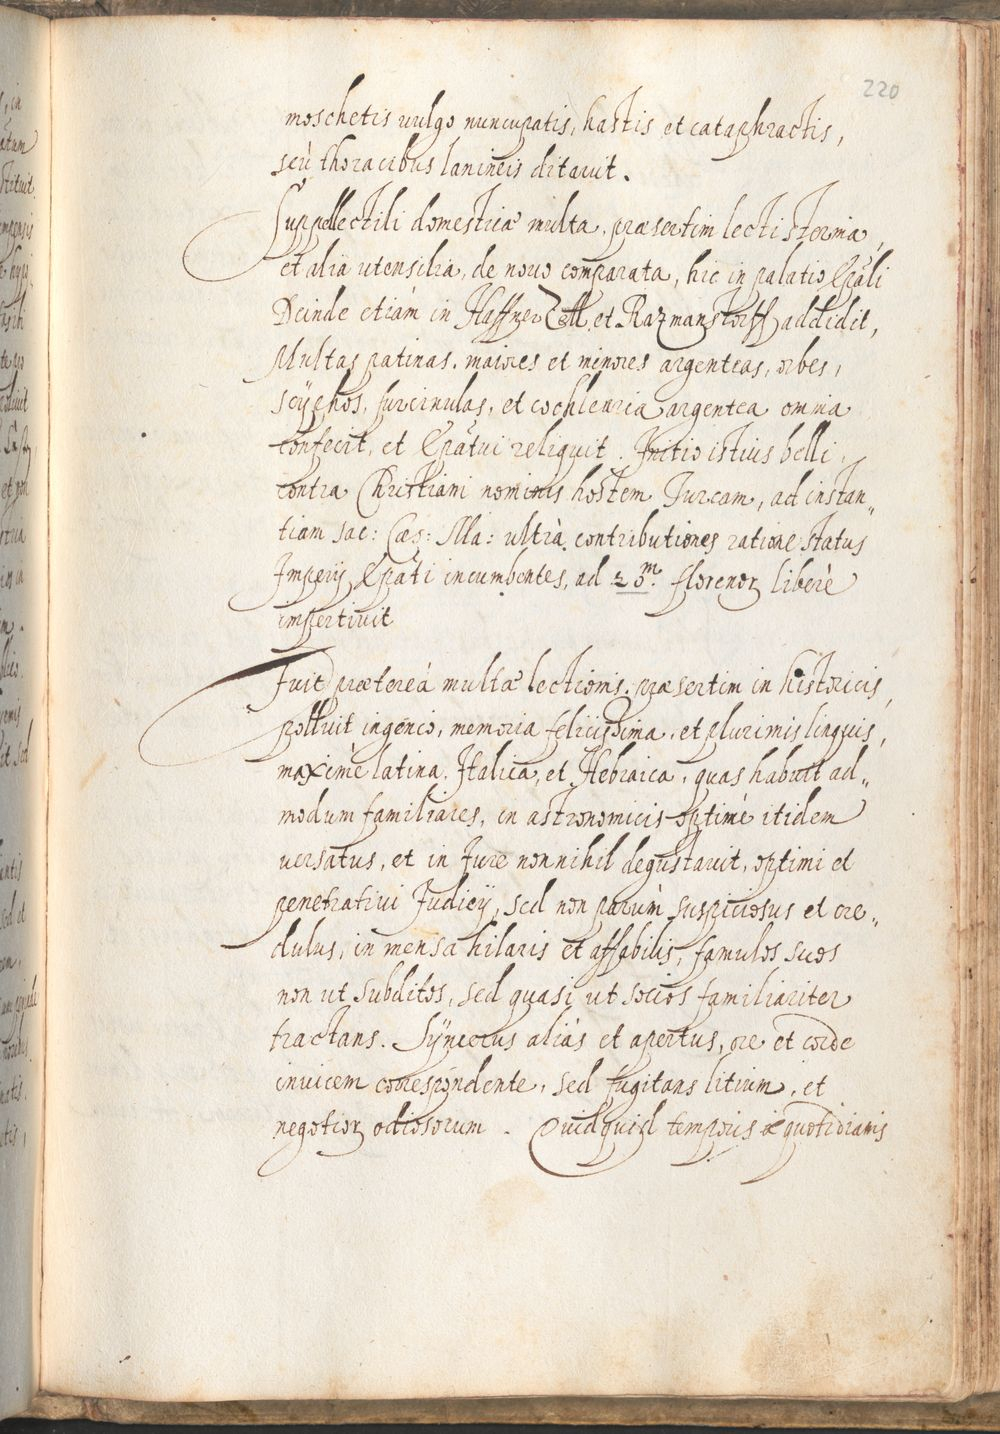 220
moschetis vulgo nuncupatis, hastis et cataphractis,
seù thoracibus lamineis ditavit.
Suppellectili domesticæ multa, præsertim lectisternia,
et alia utensilia, de novo comparata, hic in palatio Epâli
Deinde etiàm in HaffnerZell, et Razmanstorff addidit,
Multas patinas, maiores et minores argenteas, orbes,
scÿphos, furcinulas, et cochlearia argentea omnia
confecit, et Epâtui reliquit. Initio istius belli,
contra Christiani nominis hostem Turcam, ad instan„
tiam sac: Cæs: Ma: ultrà contributiones ratione status
Imperij Epâti incumbentes, ad florenor liberè
impertivit
Fuit prætereà multæ lectionis, præsertim in historicis,
polluit ingenio, memoria felicissima, et plurimis linguis,
maximè latina, Italica, et Hebraica, quas habuit ad„
modum familiares, in astronomicis optimè itidem
versatus, et in Jure nonnihil degustavit, optimi et
penetrativi Judicij, sed non parùm suspiciosus et cre„
dulus, in mensa hilaris et affabilis, famulos suos
non ut subditos, sed quasi ut socios familiariter
tractans. Sÿncerus aliàs et apertus, ore et corde
invicem correspondente, sed fugitans litium, et
negotior odiosorum. Quidquid temporis quotidianis